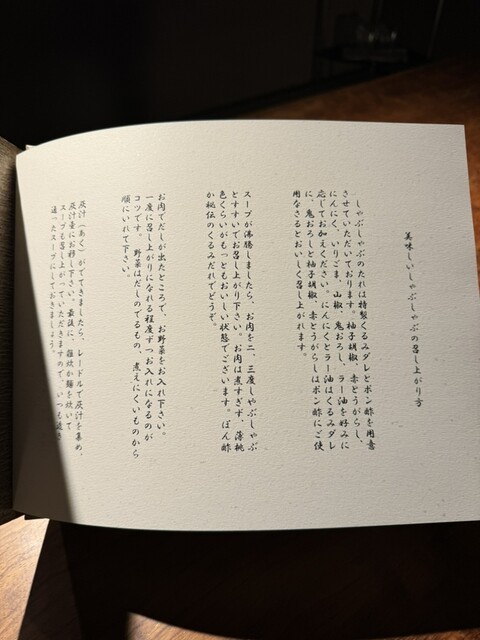 美味しいしゃぶしゃぶの召し上がり方
しゃぶしゃぶのたれは特製くるみダレとポン酢を用意
させていただいております。柚子胡椒、赤とうがらし、
にんにく、いりごま、山椒、鬼おろし、ラー油を好みに
応じてお加えください。にんにくとラー油はくるみダレ
に、鬼おろしと柚子胡椒、赤とうがらしはポン酢にご使
用なさるとおいしく召し上がれます。
スープが沸騰しましたら、お肉を二、三度しゃぶしゃぶ
とすすいでお召し上がり下さい。お肉は煮すぎず、薄桃
色くらいがもっともおいしい状態でございます。ぽん酢
か秘伝のくるみだれでどうぞ。
お肉でだしが出たところで、お野菜をお入れ下さい。
一度に召し上がりになれる程度ずつお入れになるのが
コツです。野菜はだしのでるもの、煮えにくいものから
順にいれて下さい。
灰汁(あく)がでてきましたら、レードルで灰汁を集め、
灰汁壷にお移し下さい。最後に、雑炊か麺を炊いて
スープも召し上がっていただきますので、いつも透き
通ったスープにしておきましょう。